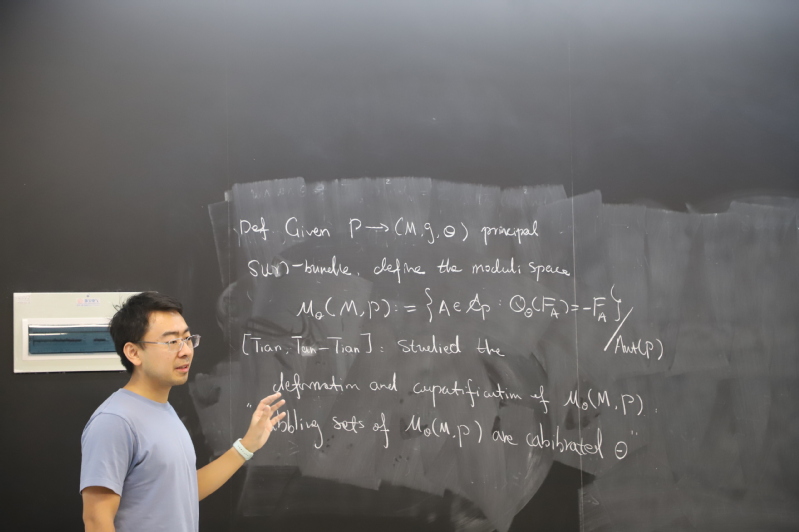 Def Given P → (M, g, Θ) principal
SU(n)-bundle, define the moduli space
M_Θ(M, P) := {A ∈ 𝒜_P : Q_Θ(F_A) = -F_A} / Aut(P)
[Tian, Tao-Tian]: Studied the
deformation and cupatification of M_Θ(M, P).
sets of M_Θ(M, P) are cabibrated Θ"